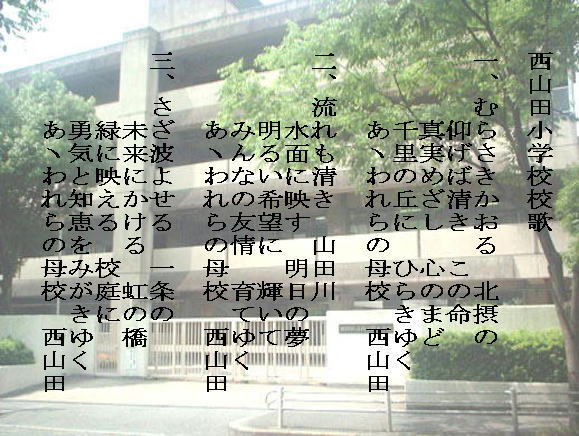 西山田小学校校歌
一、むらさきかおる 北摂の
仰げば清き この命
真実めざし 心のまど
千里の丘に ひらきゆく
あゝわれらの 母校 西山田
二、流れも清き 山田川
水面に映す 明日の夢
明るい希望に 輝いて
みんなの友情 育てゆく
あゝわれらの 母校 西山田
三、さざ波よせる 一条の
未来にかける 虹の橋
緑に映える 校庭に
勇気と知恵を みがきゆく
あゝわれらの 母校 西山田